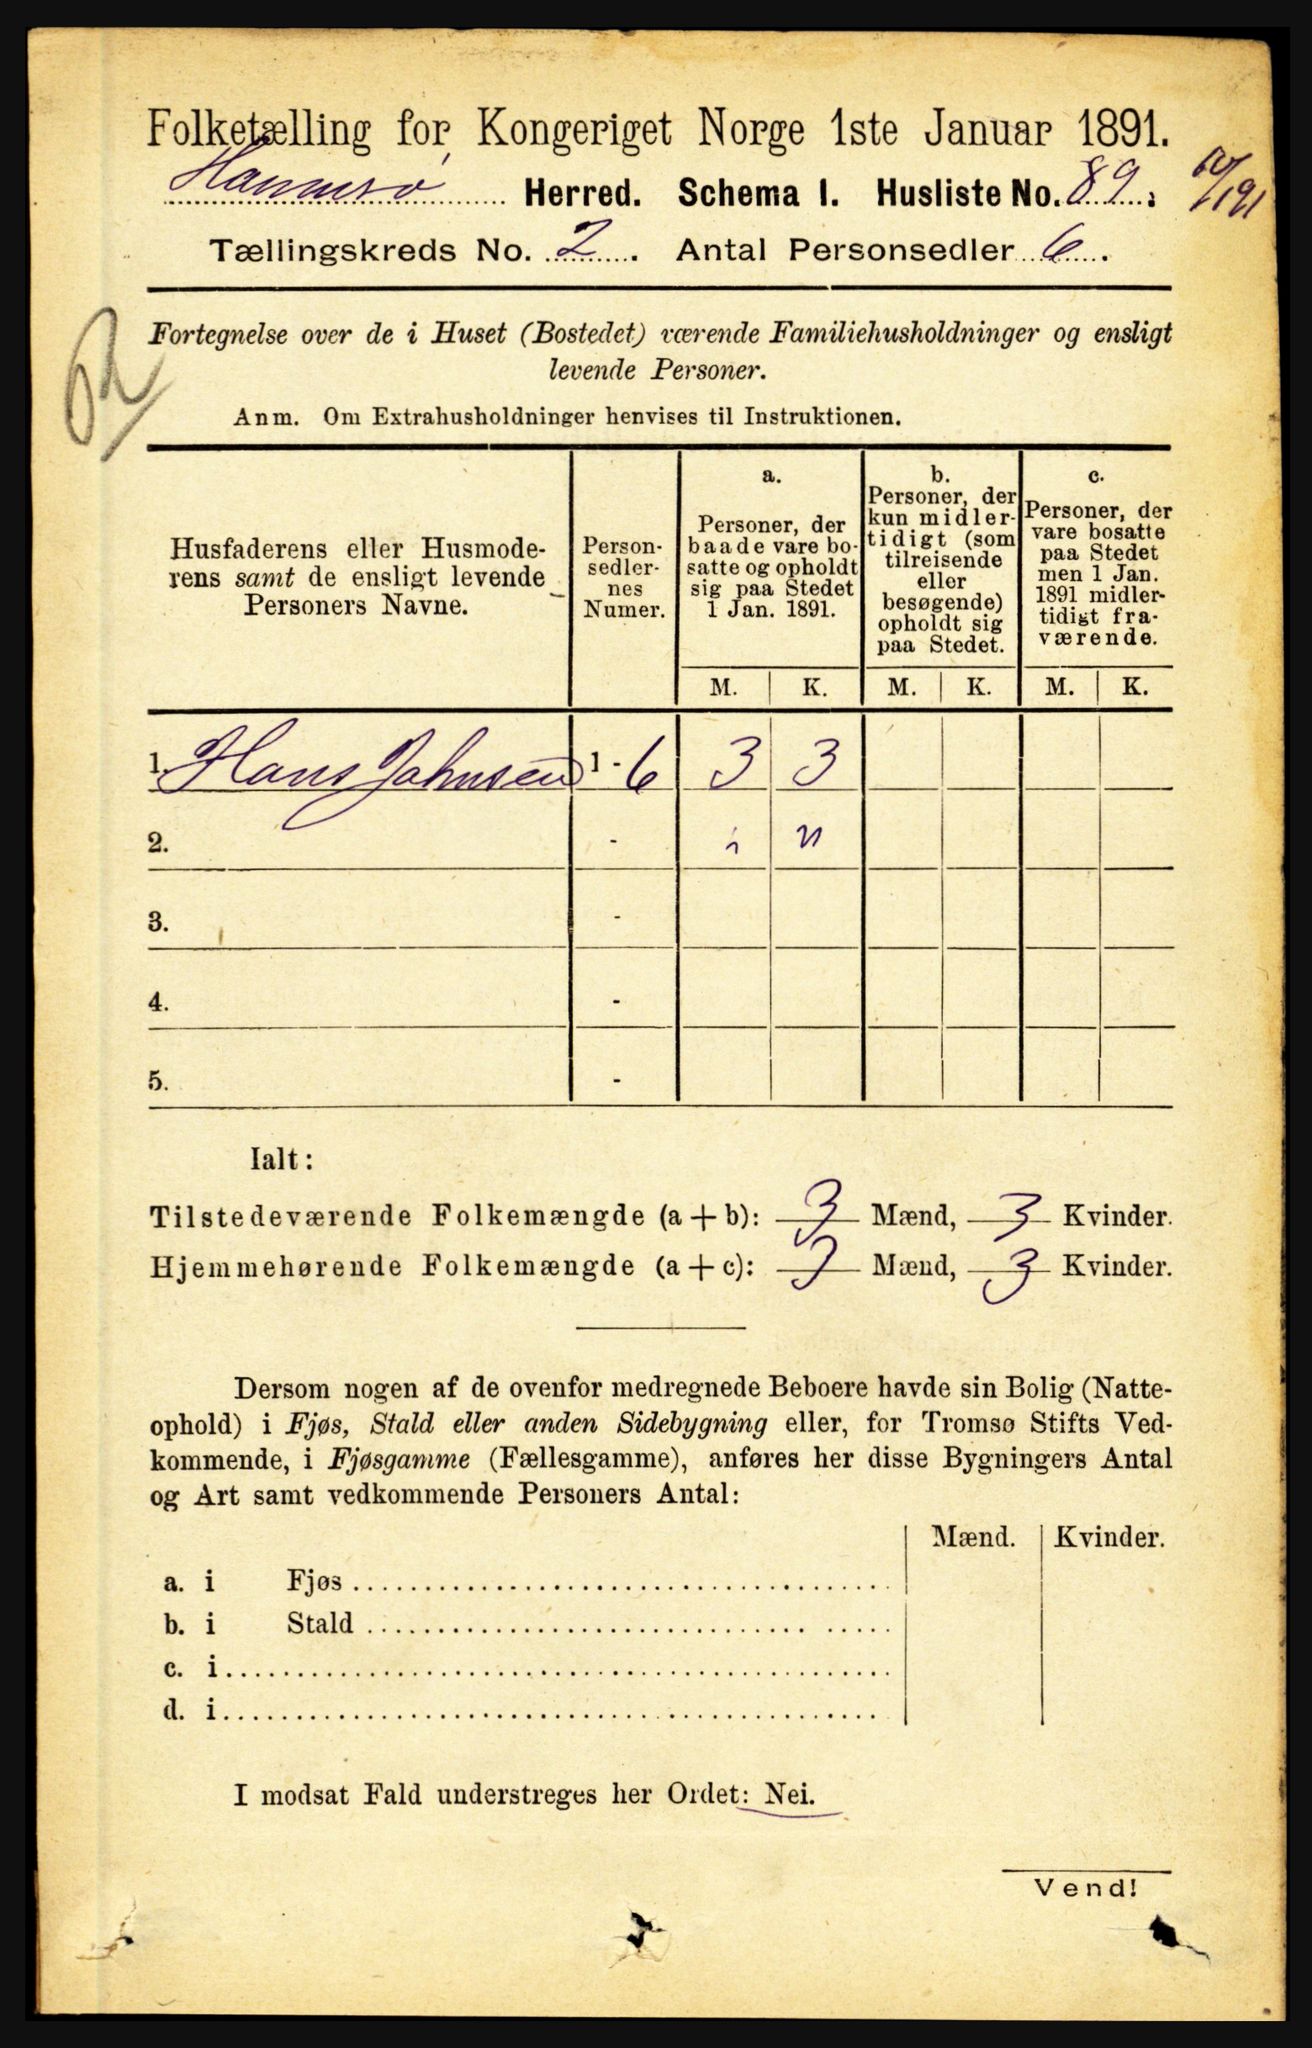 Folketælling for Kongeriget Norge 1ste Januar 1891.
Herred. Schema I. Husliste No. 89.
Tællingskreds No. 2. Antal Personsedler 6.
Fortegnelse over de i Huset (Bostedet) værende Familiehusholdninger og ensligt
levende Personer.
Anm. Om Extrahusholdninger henvises til Instruktionen.
Husfaderens eller Husmode-
rens samt de ensligt levende
Personers Navne.
Person-
sedler-
nes
Numer.
a.
Personer, der
baade vare bo-
satte og opholdt
sig paa Stedet
1 Jan. 1891.
b.
Personer, der
kun midler-
tidigt (som
tilreisende
eller
besøgende)
opholdt sig
paa Stedet.
c.
Personer, der
vare bosatte
paa Stedet
men 1 Jan.
1891 midler-
tidigt fra-
værende.
M. K. M. K. M. K.
1. Hans Johnsen 1 - 6 3 3
2. - " "
3. -
4. -
5. -
Ialt:
Tilstedeværende Folkemængde (a + b): 3 Mænd, 3 Kvinder.
Hjemmehørende Folkemængde (a + c): 3 Mænd, 3 Kvinder.
Dersom nogen af de ovenfor medregnede Beboere havde sin Bolig (Natte-
ophold) i Fjøs, Stald eller anden Sidebygning eller, for Tromsø Stifts Ved-
kommende, i Fjøsgamme (Fællesgamme), anføres her disse Bygningers Antal
og Art samt vedkommende Personers Antal:
Mænd. Kvinder.
a. i Fjøs
b. i Stald
c. i
d. i
I modsat Fald understreges her Ordet: Nei.
Vend!